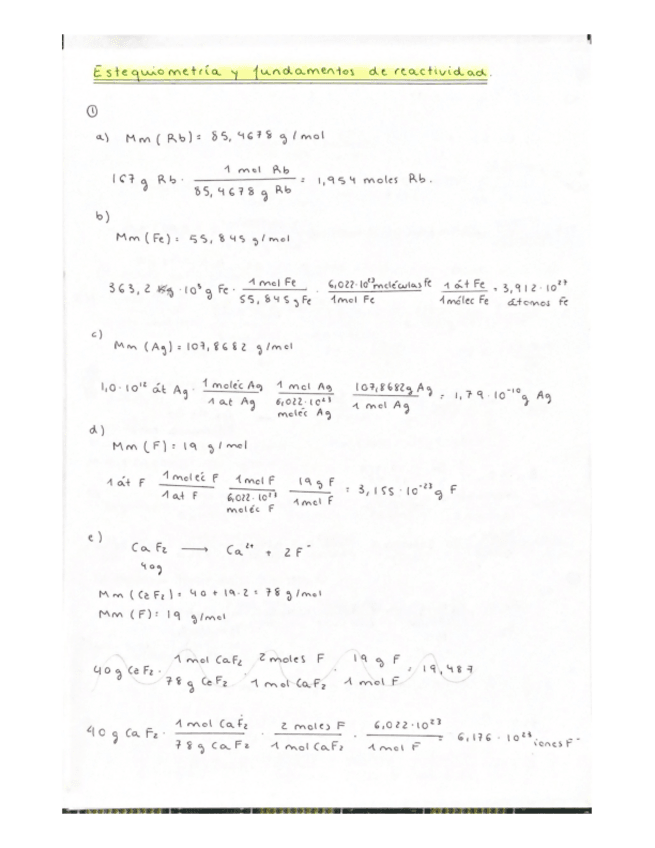 Estequiometría y fundamentos de reactividad.
①
a) Mm (Rb) = 85,4678 g/mol
167 g Rb · 1 mol Rb / 85,4678 g Rb = 1,954 moles Rb.
b)
Mm (Fe) = 55,845 g/mol
363,2 · 10³ g Fe · 1 mol Fe / 55,845 g Fe · 6,022·10²³ moléculas Fe / 1 mol Fe · 1 át Fe / 1 mólec Fe = 3,912 · 10²⁷ átomos Fe
c)
Mm (Ag) = 107,8682 g/mol
1,0 · 10¹² át Ag · 1 moléc Ag / 1 at Ag · 1 mol Ag / 6,022·10²³ moléc Ag · 107,8682 g Ag / 1 mol Ag = 1,79 · 10⁻¹⁰ g Ag
d)
Mm (F) = 19 g/mol
1 át F · 1 moléc F / 1 at F · 1 mol F / 6,022·10²³ moléc F · 19 g F / 1 mol F = 3,155 · 10⁻²³ g F
e)
CaF₂ ⟶ Ca²⁺ + 2F⁻
40g
Mm (CaF₂) = 40 + 19·2 = 78 g/mol
Mm (F) = 19 g/mol
40 g CaF₂ · 1 mol CaF₂ / 78 g CaF₂ · 2 moles F / 1 mol CaF₂ · 19 g F / 1 mol F = 19,487
40 g CaF₂ · 1 mol CaF₂ / 78 g CaF₂ · 2 moles F / 1 mol CaF₂ · 6,022·10²³ / 1 mol F = 6,176 · 10²³ iones F⁻